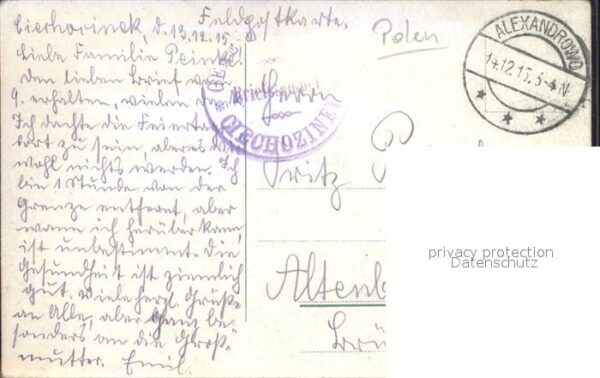 Cierhorinek d. 13.12.15
Feldpostkarte.
Liebe Familie Peinke!
Den lieben Brief vom
9. erhalten, vielen
Ich dachte die Feiertage
dort zu sein, aber es wird
wohl nichts werden. Ich
bin 1 Stunde von der
Grenze entfernt, aber
wann ich herüber kann,
ist unbestimmt. Die
Gesundheit ist ziemlich
gut. Viele herzl. Grüße
an Alle, aber ganz be-
sonders an die Groß-
mutter. Emil.
Polen
ALEXANDROWO
14.12.15. 3-4 N
CIECHOZINEK
Herrn
Fritz P
Altenb
Brü
privacy protection
Datenschutz